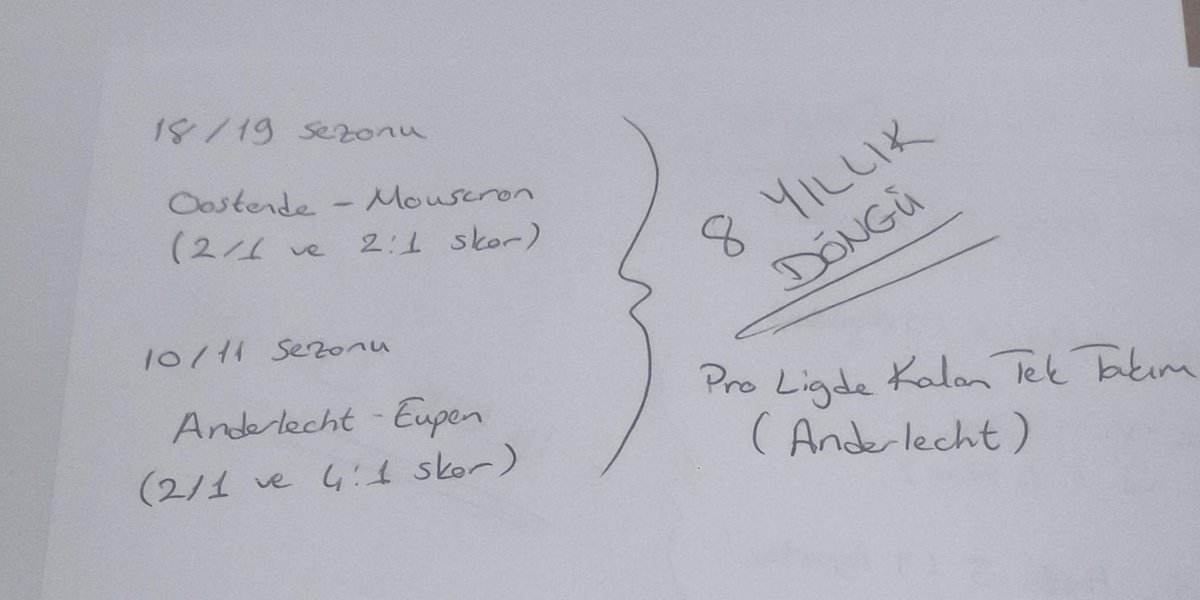 18/19 sezonu
Oostende - Mouscron
(2/1 ve 2:1 skor)
10/11 sezonu
Anderlecht - Eupen
(2/1 ve 4:1 skor)
8 YILLIK
DÖNGÜ
Pro Ligde Kalan Tek Takım
(Anderlecht)